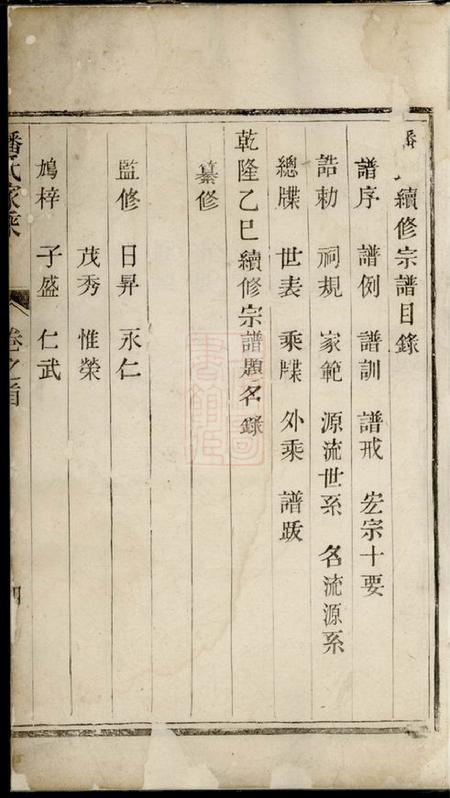 續修宗譜目錄
譜序 譜例 譜訓 譜戒 宏宗十要
誥勅 祠規 家範 源流世系 名流源系
總牒 世表 乘牒 外乘 譜跋
乾隆乙巳續修宗譜題名錄
纂修
監修 日昇 永仁
茂秀 惟榮
鳩梓 子盛 仁武
潘氏家乘 卷之首